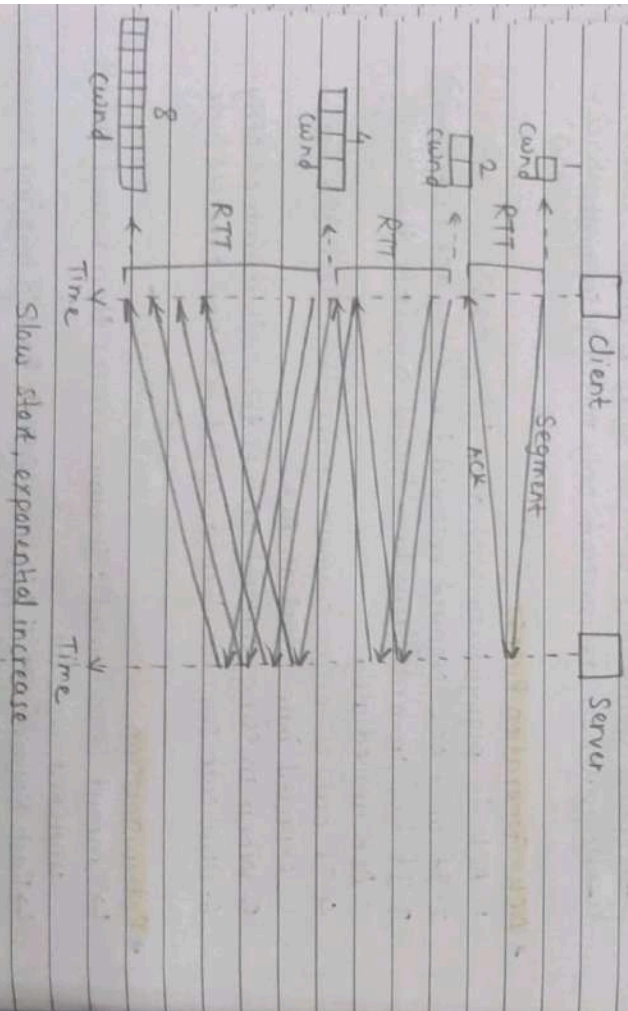 client
Server
1
cwnd
Segment
RTT
ACK
2
cwnd
RTT
4
cwnd
RTT
8
cwnd
Time
Time
Slow start, exponential increase